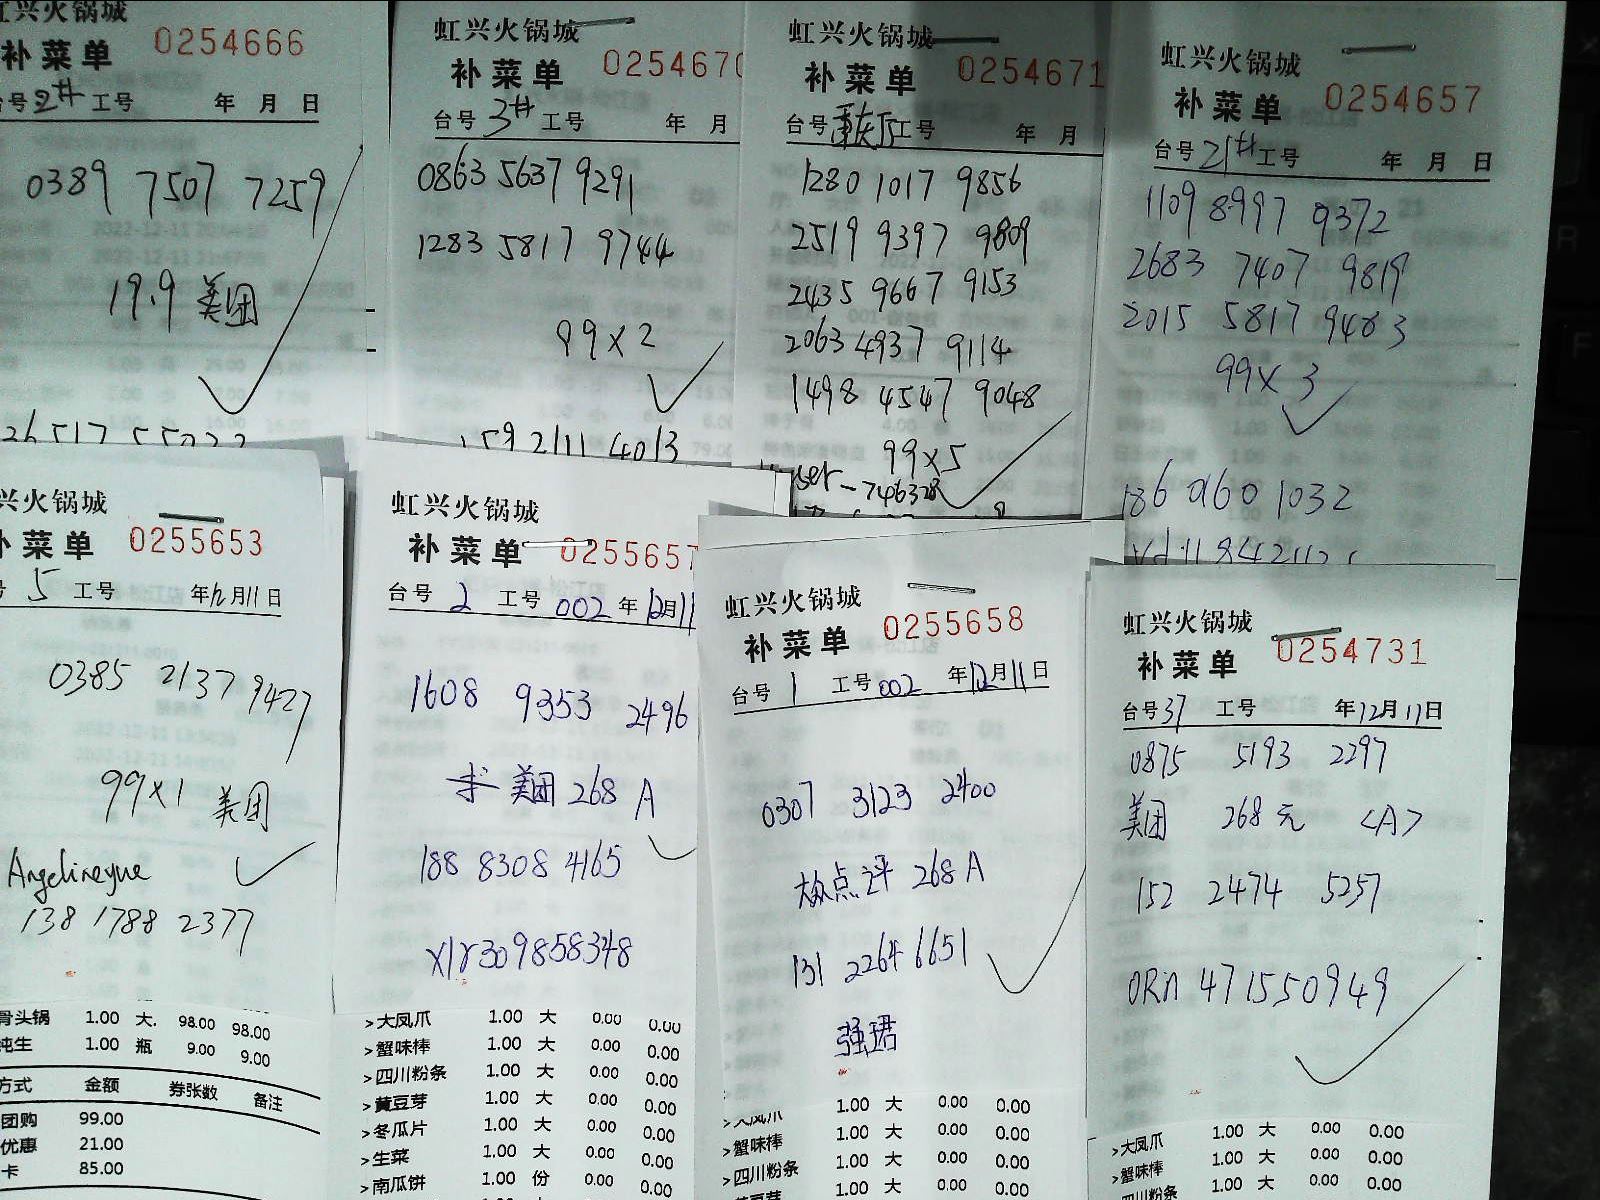 虹兴火锅城
补菜单 0254666
台号 2# 工号 年 月 日
0389 7507 7259
19.9 美团
虹兴火锅城
补菜单 0254670
台号 3# 工号 年 月
0863 5637 9291
1283 5817 9744
99×2
159 2111 4013
虹兴火锅城
补菜单 0254671
台号 工号 年 月
1280 1017 9856
2519 9397 9809
2435 9667 9153
2063 4937 9114
1498 4547 9048
99×5
虹兴火锅城
补菜单 0254657
台号 21# 工号 年 月 日
1109 8997 9372
2683 7407 9819
2015 5817 9483
99×3
186 0160 1032
兴火锅城
补菜单 0255653
号 5 工号 年 12 月 11 日
0385 2137 9427
99×1 美团
Angelineyue
138 1788 2377
骨头锅 1.00 大. 98.00 98.00
纯生 1.00 瓶 9.00 9.00
方式 金额 券张数 备注
团购 99.00
优惠 21.00
卡 85.00
虹兴火锅城
补菜单 0255657
台号 2 工号 002 年 12月 11
1608 9353 2496
美团 268 A
188 8308 4165
>大凤爪 1.00 大 0.00 0.00
>蟹味棒 1.00 大 0.00 0.00
>四川粉条 1.00 大 0.00 0.00
>黄豆芽 1.00 大 0.00 0.00
>冬瓜片 1.00 大 0.00 0.00
>生菜 1.00 大 0.00 0.00
>南瓜饼 1.00 份 0.00 0.00
虹兴火锅城
补菜单 0255658
台号 1 工号 002 年 12月 11 日
0307 3123 2400
大众点评 268 A
131 2264 6651
强珺
>大凤爪 1.00 大 0.00 0.00
>蟹味棒 1.00 大 0.00 0.00
>四川粉条 1.00 大 0.00 0.00
黄豆芽 1.00 大 0.00 0.00
虹兴火锅城
补菜单 0254731
台号 37 工号 年 12月 11 日
0875 5193 2297
美团 268元 <A>
152 2474 5257
0RA 471550949
>大凤爪 1.00 大 0.00 0.00
>蟹味棒 1.00 大 0.00 0.00
>四川粉条 1.00 大 0.00 0.00